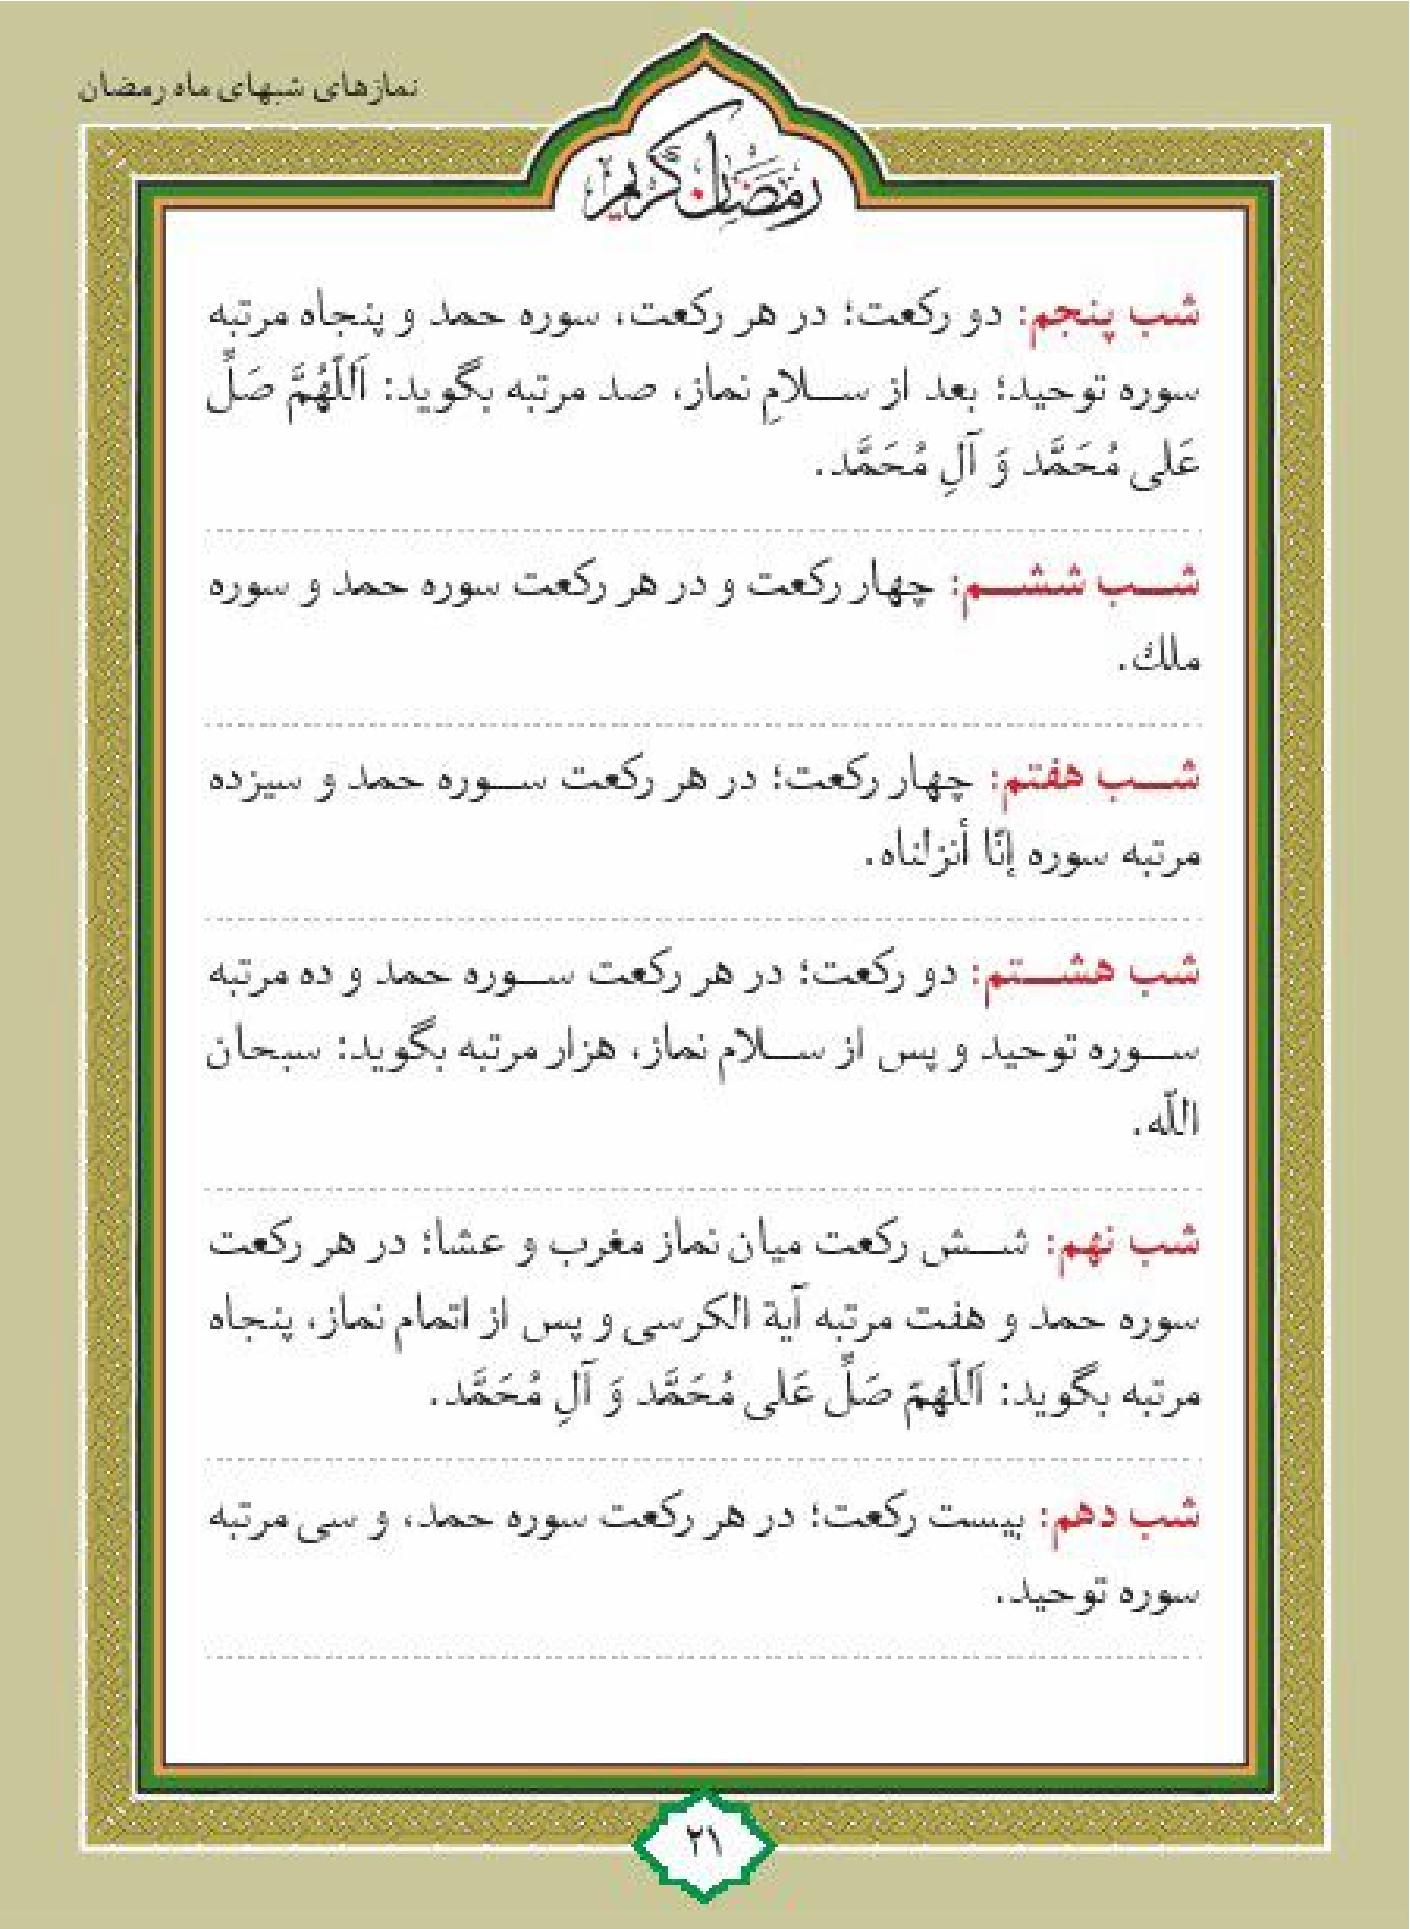 نمازهای شبهای ماه رمضان
رمضان کریم
شب پنجم: دو رکعت؛ در هر رکعت، سوره حمد و پنجاه مرتبه
سوره توحید؛ بعد از سـلامِ نماز، صد مرتبه بگوید: اَللّهُمَّ صَلِّ
عَلی مُحَمَّد وَ آلِ مُحَمَّد.
شـب ششـم: چهار رکعت و در هر رکعت سوره حمد و سوره
ملك.
شـب هفتم: چهار رکعت؛ در هر رکعت سـوره حمد و سیزده
مرتبه سوره إنّا أنزلناه.
شب هشـتم: دو رکعت؛ در هر رکعت سـوره حمد و ده مرتبه
سـوره توحید و پس از سـلام نماز، هزار مرتبه بگوید: سبحان
اللّه.
شب نهم: شـش رکعت میان نماز مغرب و عشا؛ در هر رکعت
سوره حمد و هفت مرتبه آیة الکرسی و پس از اتمام نماز، پنجاه
مرتبه بگوید: اَللّهمّ صَلِّ عَلی مُحَمَّد وَ آلِ مُحَمَّد.
شب دهم: بیست رکعت؛ در هر رکعت سوره حمد، و سی مرتبه
سوره توحید.
۲۱